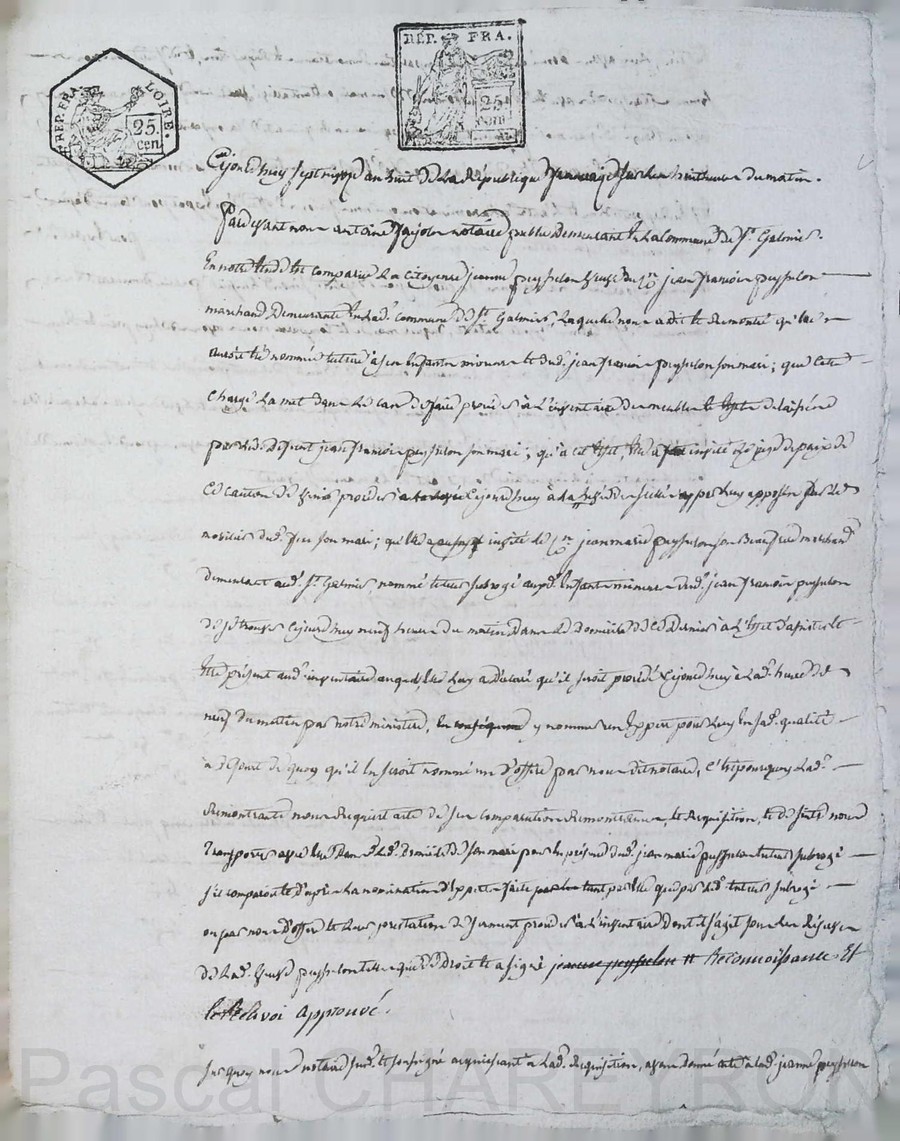 RÉP. FRA. LOIRE.
25. cen.
RÉP. FRA.
25 cen
Cejourd'huy sept nivose an huit de la République française sur les huit heures du matin.
Pardevant nous antoine notaire public demeurant en la Commune de St Galmier.
En notre étude est comparue La Citoyenne jeanne peysselon veuve du Cn jean françois peysselon
marchand Demeurante en lad. commune de St Galmier, Laquelle nous a dit et Remontré qu'elle
auroit été nommée tutrice à ses Enfants mineurs et dud. jean françois peysselon son mari; que cette
Charge La met dans le cas de faire procéder à L'inventaire des meubles et effets délaissés
par led. Défunt jean françois peysselon son mari; qu'à cet effet, elle a invité le juge de paix de
Ce canton de venir procéder cejourd'huy à la levée des scellés apposés sur les
mobiliers dud. feu son mari; qu'elle a aussy invité le Cn jean marie peysselon son Beaufrère marchand
demeurant aud. St Galmier, nommé tuteur subrogé auxd. Enfants mineurs dud. jean françois peysselon
de se trouver cejourd'huy neuf heures du matin dans le domicile de ce Dernier à L'effet d'assister et
être présent aud. inventaire auquel, elle Luy a déclaré qu'il seroit procédé Cejourd'huy à lad. heure de
neuf du matin par notre ministère, y nommer un Expert pour Luy en sad. qualité
à défaut de quoy qu'il en seroit nommé un d'office par nous dit notaire, C'est pourquoy Lad.
Remontrante nous Requiert acte de ses comparution Remontrance, et Requisition, et de suite nous
transporter avec elle dans led. domicile de son mari pour en présence dud. jean marie peysselon tuteur subrogé
s'il comparoit et d'après La nomination d'Expert faite tant par elle que par led. tuteur subrogé
ou par nous d'office et Leur prestation de serment procéder à L'inventaire Dont il s'agit sous les Réserves
de Lad. veuve peysselon telles que de Droit et a signé jeanne peysselon Reconnoissance Et
le Relavoi Approuvé.
Sur quoy nous notaire sud. et soussigné acquiessant à Lad. Requisition, avons donné acte à lad. jeanne peysselon
Pascal CHAREYRON